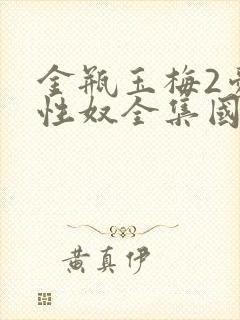 金瓶玉梅2
性奴全集國
黄真伊